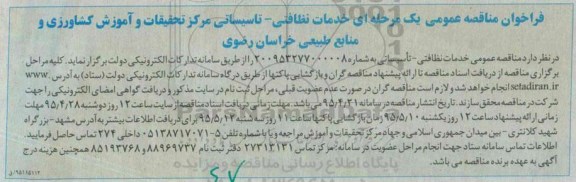 فراخوان مناقصه عمومی یک مرحله ای خدمات نظافتی- تاسیساتی مرکز تحقیقات و آموزش کشاورزی و
منابع طبیعی خراسان رضوی
در نظر دارد مناقصه عمومی خدمات نظافتی - تأسیساتی به شماره ۲۰۰۹۵۳۲۷۷۰۰۰۰۰۸ را از طریق سامانه تدارکات الکترونیکی دولت برگزار نماید. کلیه مراحل
برگزاری مناقصه از دریافت اسناد مناقصه تا ارائه پیشنهاد مناقصه گران و بازگشایی پاکتها از طریق درگاه سامانه تدارکات الکترونیکی دولت (ستاد) به آدرس www.
setadiran.ir انجام خواهد شد و لازم است مناقصه گران در صورت عدم عضویت قبلی، مراحل ثبت نام در سایت مذکور و دریافت گواهی امضای الکترونیکی را جهت
شرکت در مناقصه محقق سازند. تاریخ انتشار مناقصه در سامانه ۹۵/۴/۲۱ می باشد. مهلت زمانی دریافت اسناد مناقصه از سایت ساعت ۱۲ روز دوشنبه ۹۵/۴/۲۸ مهلت
زمانی ارائه پیشنهاد ساعت ۱۲ روز یکشنبه ۹۵/۵/۱۰ زمان بازگشایی پاکتها ساعت ۱۱ روز ۹۵/۵/۱۳ برای دریافت اطلاعات بیشتر به آدرس مشهد- بزرگراه
شهید کلانتری - بین میدان جمهوری اسلامی و جهاد مرکز تحقیقات و آموزش مراجعه و یا با شماره تلفن ۵-۰۵۱۳۸۷۱۷۰۷۱ داخلی ۲۷۴ تماس حاصل فرمایید
اطلاعات تماس سامانه ستاد جهت انجام مراحل عضویت در سامانه: مرکز تماس ۲۷۳۱۳۱۳۱ دفتر ثبت نام ۸۸۹۶۹۷۳۷ و ۸۵۱۹۳۷۶۸ همچنین هزینه درج
آگهی به عهده برنده مناقصه می باشد.